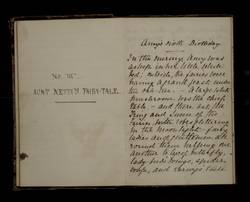 No. "III".
AUNT NETTY'S FAIRY-TALE.
Amy's Sixth Birthday.
In the nursery Amy was
asleep in her little white
bed; outside, the fairies were
having a grand feast under
the oak tree. — A large white
mushroom was the chief
table — and there sat the
King and Queen of the
fairies,
in the moonlight — fairy
ladies and gentlemen all
round them helping one
another to
Lady
wife, and